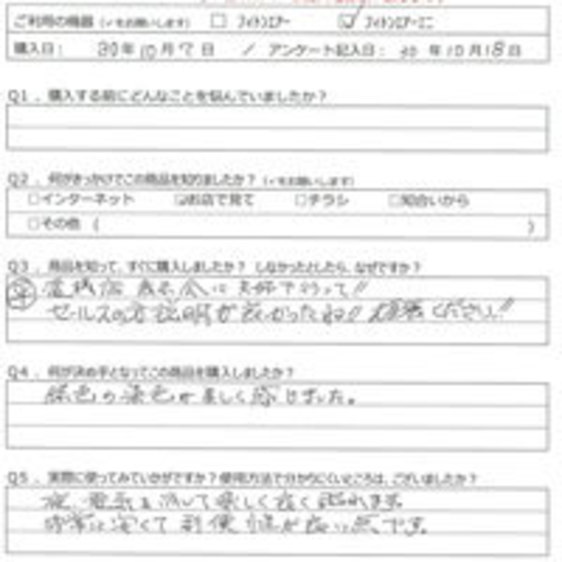 ご利用の機器（✓をお願いします） □ フィトンエアー ☑ フィトンエアーミニ
購入日： 30年10月7日 ／ アンケート記入日： 30年10月18日
Q1．購入する前にどんなことを悩んでいましたか？
Q2．何がきっかけでこの商品を知りましたか？（✓をお願いします）
□インターネット ☑お店で見て □チラシ □知合いから
□その他（ ）
Q3．商品を知って、すぐに購入しましたか？ しなかったとしたら、なぜですか？
に夫婦で行って!!
セールスの方説明が良かったね!! 頑張ください!!
Q4．何が決め手となってこの商品を購入しましたか？
緑色の 色が美しく感じました。
Q5．実際に使ってみていかがですか？使用方法で分かりにくいところは、ございましたか？
夜、電気を 楽しく良く眠れます。
非常に安くて 利便 が良い点です。